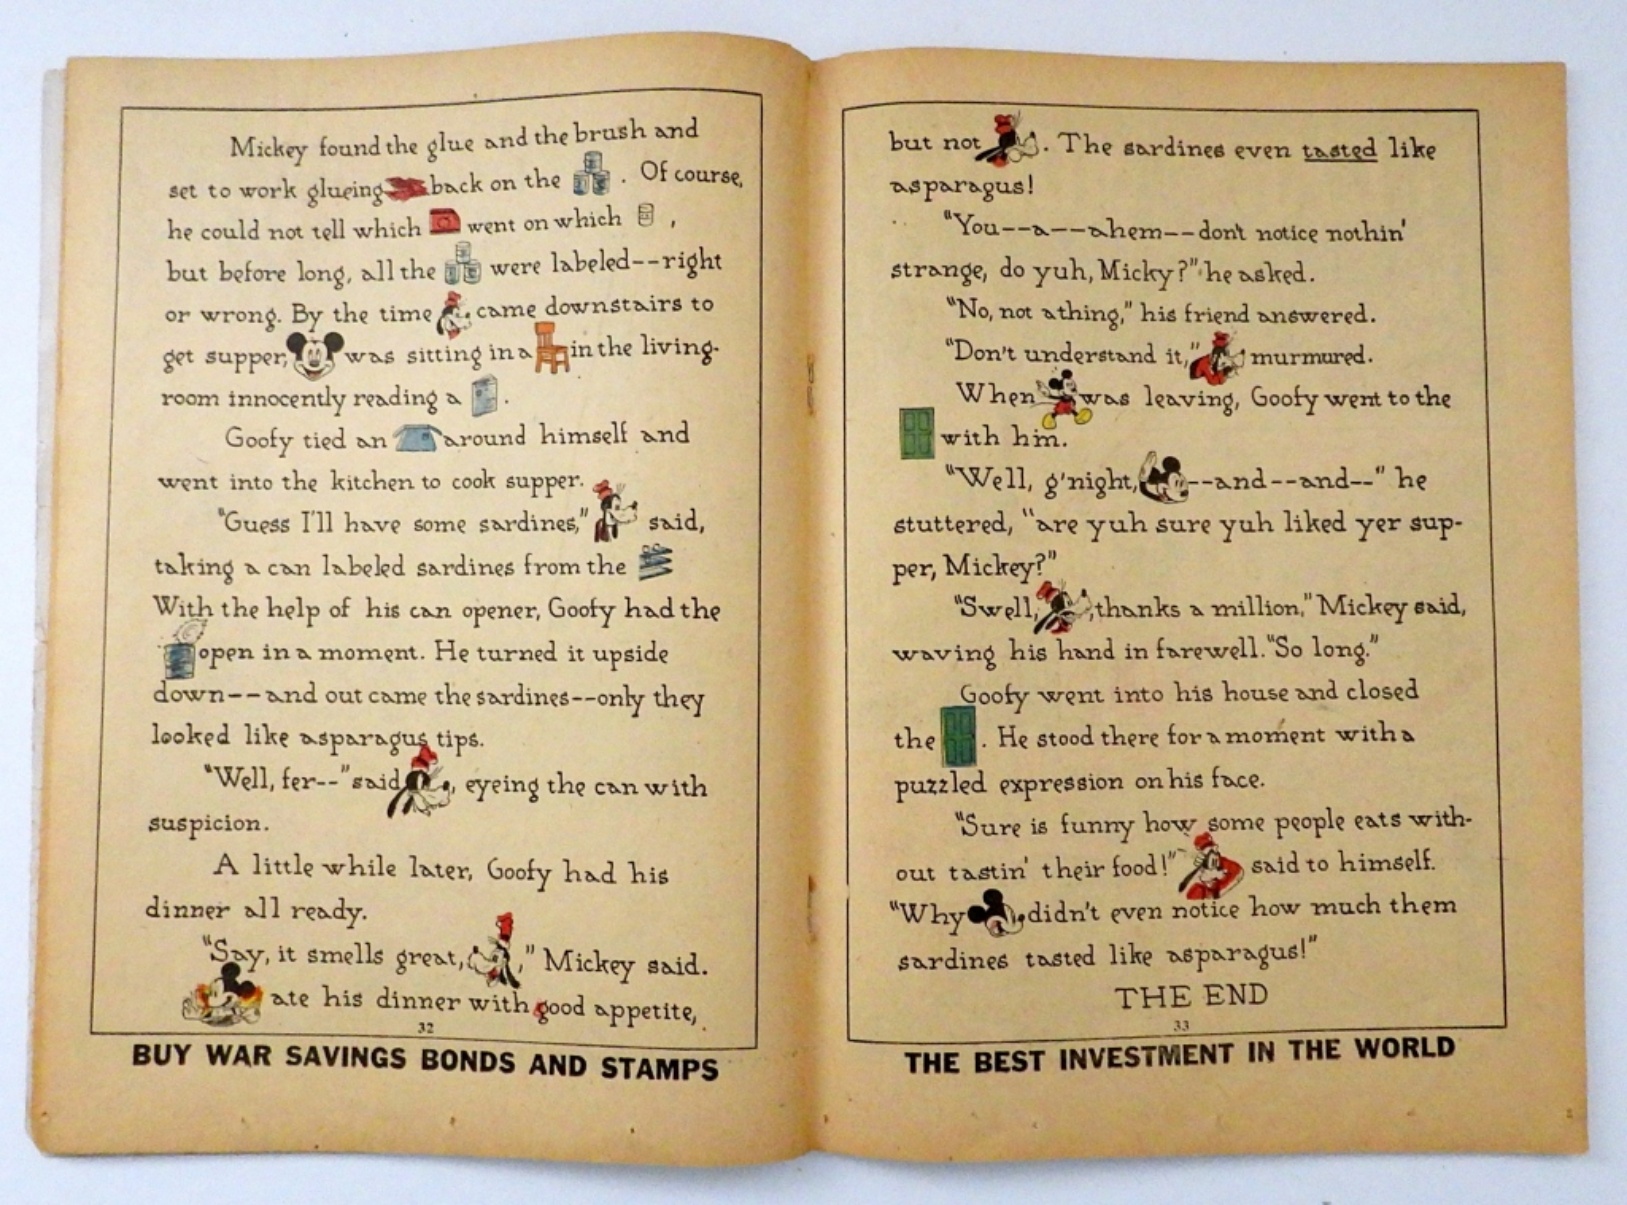 Mickey found the glue and the brush and
set to work glueing back on the . Of course,
he could not tell which went on which ,
but before long, all the were labeled--right
or wrong. By the time came downstairs to
get supper, was sitting in a in the living-
room innocently reading a .
Goofy tied an around himself and
went into the kitchen to cook supper.
"Guess I'll have some sardines," said,
taking a can labeled sardines from the
With the help of his can opener, Goofy had the
open in a moment. He turned it upside
down--and out came the sardines--only they
looked like asparagus tips.
"Well, fer--" said , eyeing the can with
suspicion.
A little while later, Goofy had his
dinner all ready.
"Say, it smells great, ," Mickey said.
ate his dinner with good appetite,
32
BUY WAR SAVINGS BONDS AND STAMPS
but not . The sardines even tasted like
asparagus!
"You--a--ahem--don't notice nothin'
strange, do yuh, Micky?" he asked.
"No, not a thing," his friend answered.
"Don't understand it," murmured.
When was leaving, Goofy went to the
with him.
"Well, g'night, --and--and--" he
stuttered, "are yuh sure yuh liked yer sup-
per, Mickey?"
"Swell, , thanks a million," Mickey said,
waving his hand in farewell. "So long."
Goofy went into his house and closed
the . He stood there for a moment with a
puzzled expression on his face.
"Sure is funny how some people eats with-
out tastin' their food!" said to himself.
"Why didn't even notice how much them
sardines tasted like asparagus!"
THE END
33
THE BEST INVESTMENT IN THE WORLD